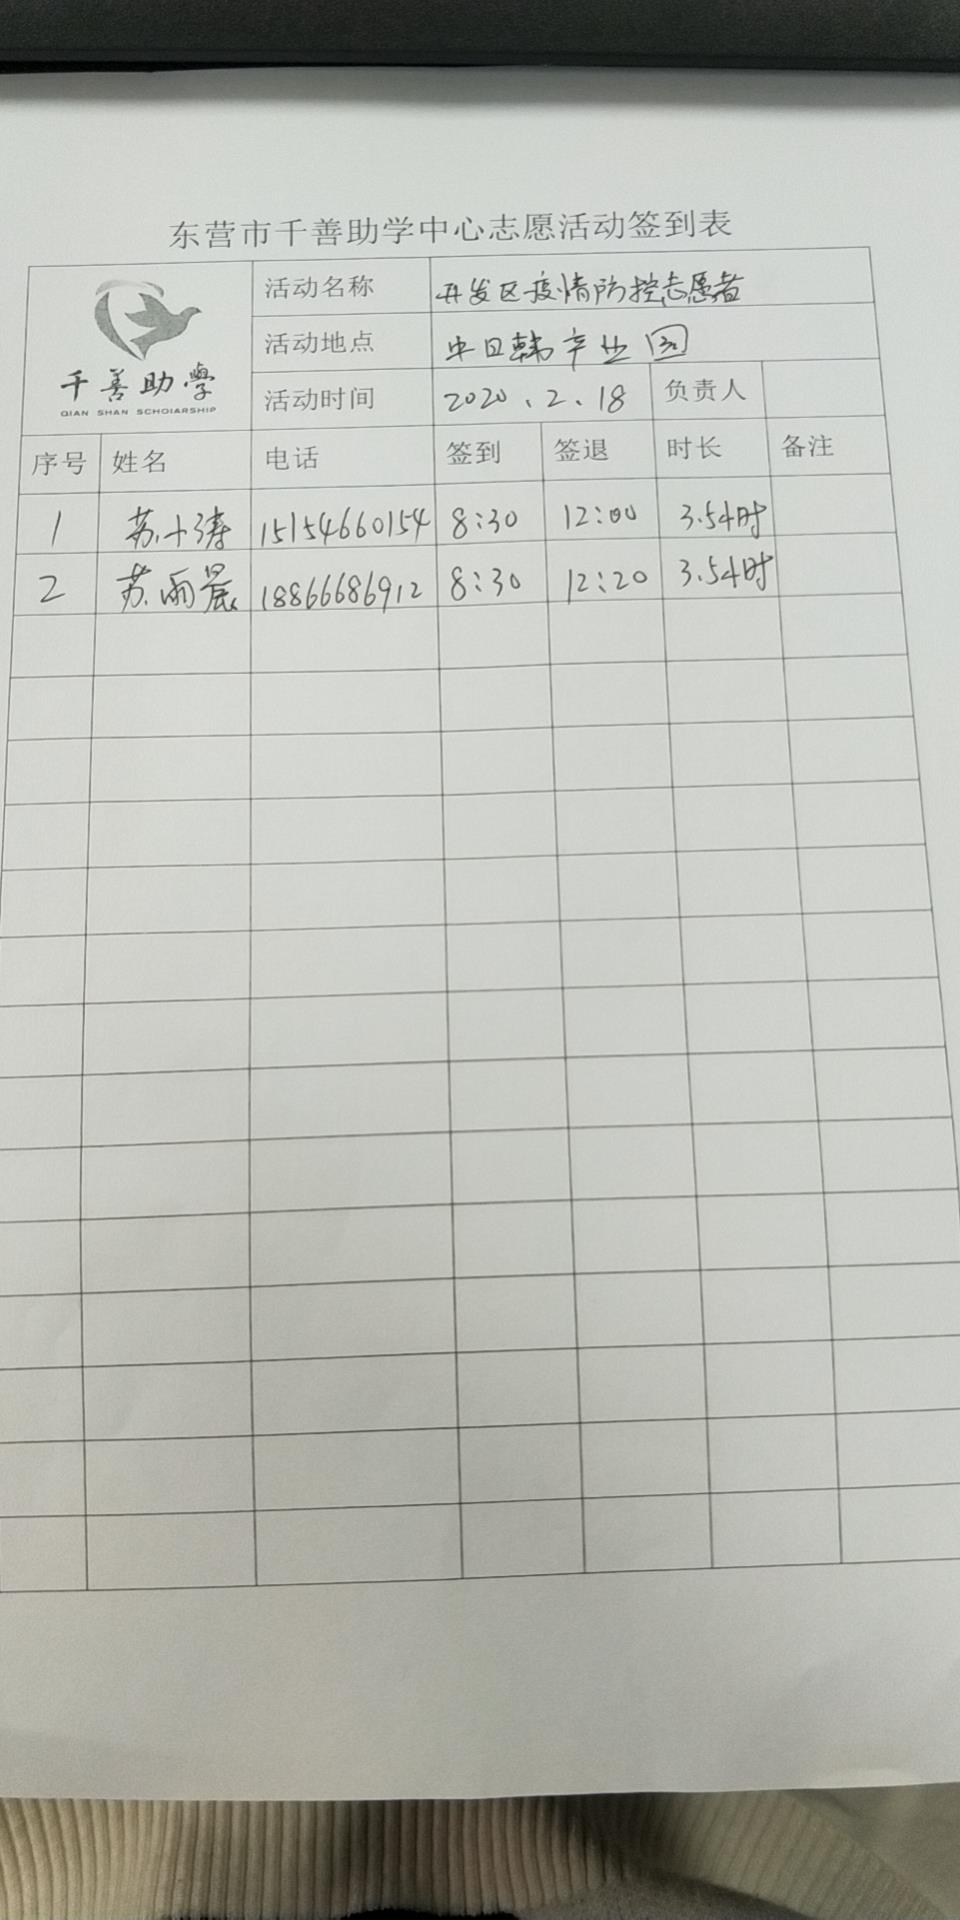 东营市千善助学中心志愿活动签到表
千善助學
QIAN SHAN SCHOIARSHIP
活动名称 开发区疫情防控志愿者
活动地点 中日韩产业园
活动时间 2020.2.18 负责人
序号 姓名 电话 签到 签退 时长 备注
1 苏小涛 15154660154 8:30 12:00 3.5小时
2 苏雨晨 18866686912 8:30 12:20 3.5小时